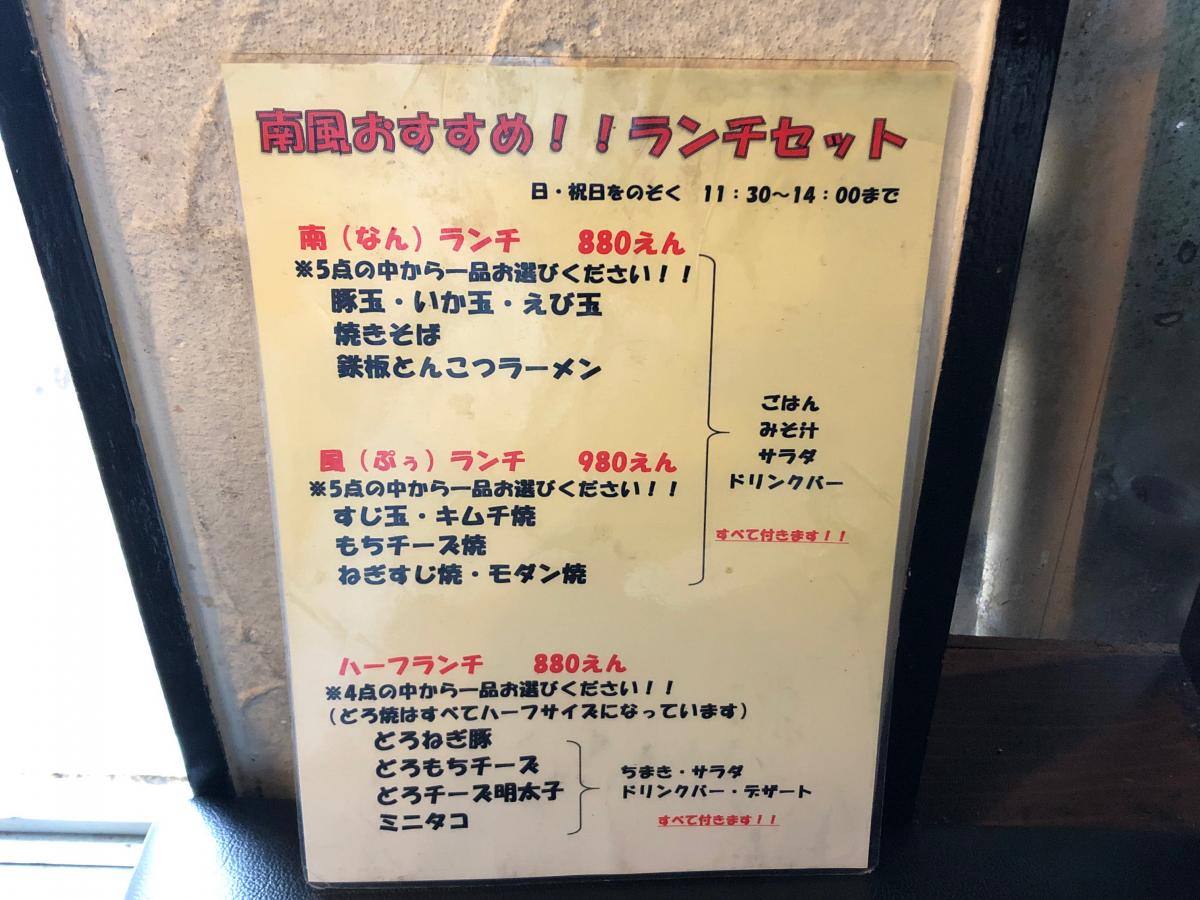 南風おすすめ！！ランチセット
日・祝日をのぞく　11：30～14：00まで
南（なん）ランチ　　880えん
※5点の中から一品お選びください！！
豚玉・いか玉・えび玉
焼きそば
鉄板とんこつラーメン
風（ぷぅ）ランチ　　980えん
※5点の中から一品お選びください！！
すじ玉・キムチ焼
もちチーズ焼
ねぎすじ焼・モダン焼
ごはん
みそ汁
サラダ
ドリンクバー
すべて付きます！！
ハーフランチ　　880えん
※4点の中から一品お選びください！！
（とろ焼はすべてハーフサイズになっています）
とろねぎ豚
とろもちチーズ
とろチーズ明太子
ミニタコ
ちまき・サラダ
ドリンクバー・デザート
すべて付きます！！